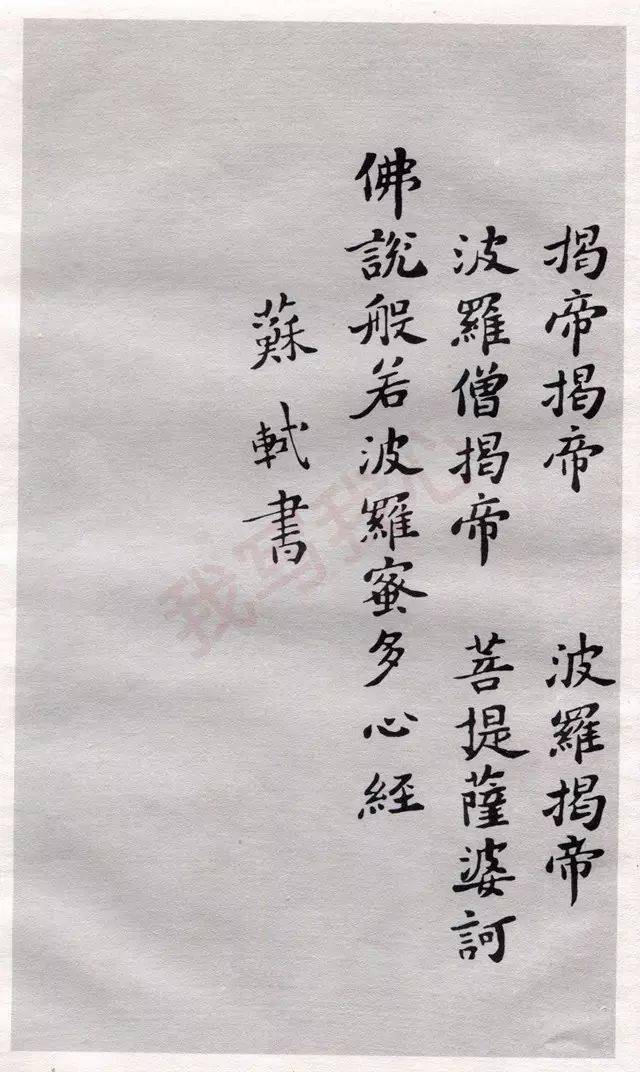 揭帝揭帝　波羅揭帝
波羅僧揭帝　菩提薩婆訶
佛說般若波羅蜜多心經
蘇軾書
我写我心